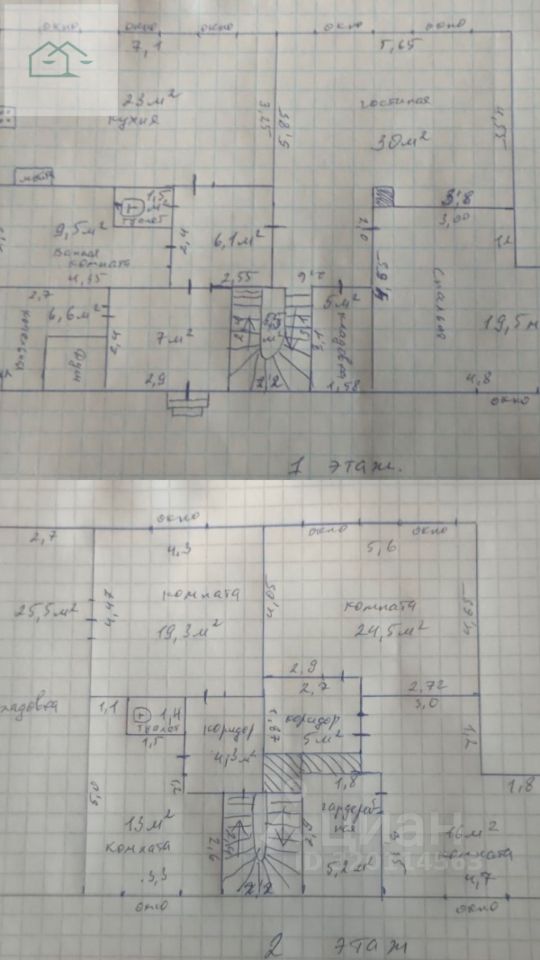 окно окно окно окно окно
7,1
5,65
23 м²
кухня
3,25
5,85
гостиная
30 м²
4,55
1,5
м²
туалет
9,5 м²
Ванная
комната
4,35
2,4
6,1 м²
2,55
2,0
3,8
3,00
1,2
спальня
19,5 м
2,7
6,6 м²
котельная
душ
2,4
7 м²
2,9
2,2
5 м²
кладовая
1,58
4,8
окно
1 этаж.
окно
окно окно
2,7
4,3
5,6
25,5 м²
4,47
комната
19,3 м²
комната
24,5 м²
2,9
2,7
2,72
3,0
1,1
1,4
туалет
1,5
коридор
4,3 м²
1,87
коридор
5 м²
1,2
1,8
5,0
13 м²
комната
3,3
2,6
2,2
1,8
гардероб
ная
5,2 м²
16 м²
комната
4,7
окно
окно
2 этаж
циан